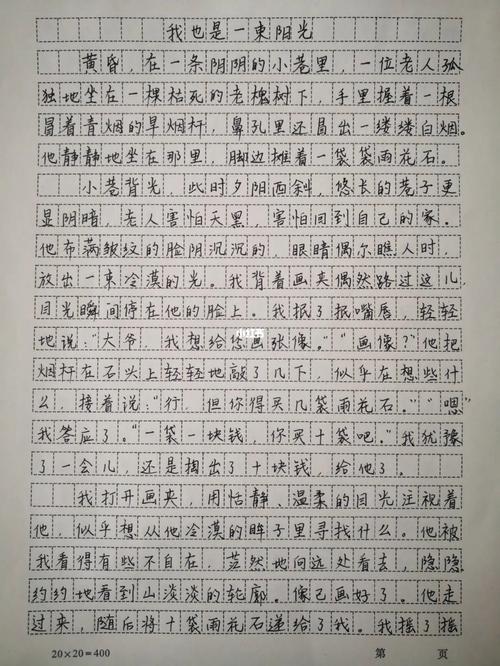 我也是一束阳光
黄昏，在一条阴阴的小巷里，一位老人孤
独地坐在一棵枯死的老槐树下，手里握着一根
冒着青烟的旱烟杆，鼻孔里还冒出一缕缕白烟。
他静静地坐在那里，脚边摊着一袋袋雨花石。
小巷背光，此时夕阳西斜，悠长的巷子更
显阴暗，老人害怕天黑，害怕回到自己的家。
他布满皱纹的脸阴沉沉的，眼睛偶尔瞧人时，
放出一束冷漠的光。我背着画夹偶然路过这儿，
目光瞬间停在他的脸上。我抿了抿嘴唇，轻轻
地说："大爷，我想给您画张像。""画像？"他把
烟杆在石头上轻轻地敲了几下，似乎在想些什
么，接着说："行，但你得买几袋雨花石。""嗯"
我答应了。"一袋一块钱，你买十袋吧。"我犹豫
了一会儿，还是掏出了十块钱，给他了。
我打开画夹，用恬静、温柔的目光注视着
他，似乎想从他冷漠的眸子里寻找什么。他被
我看得有些不自在，茫然地向远处看去，隐隐
约约地看到山淡淡的轮廓。像已画好了。他走
过来，随后将十袋雨花石递给了我。我摇了摇
20×20=400 第 页
小红书